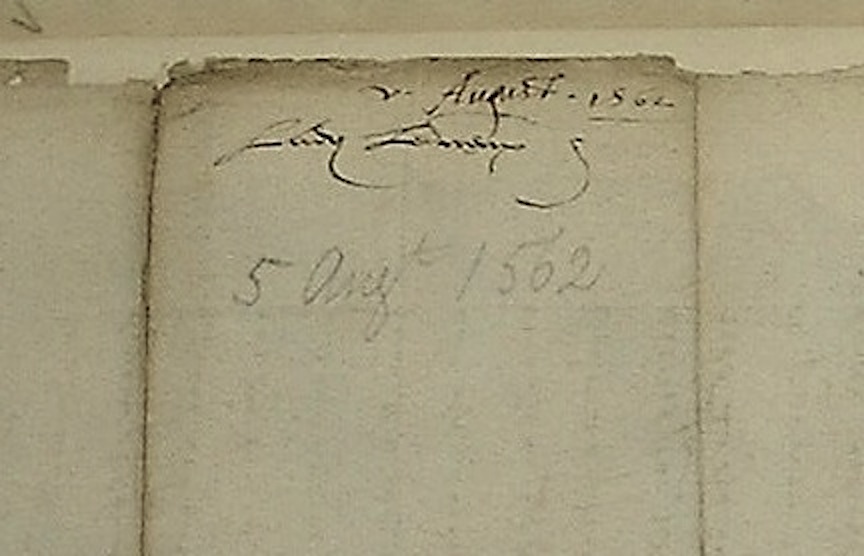 v. August. 1562
Lady
5 Augt 1562